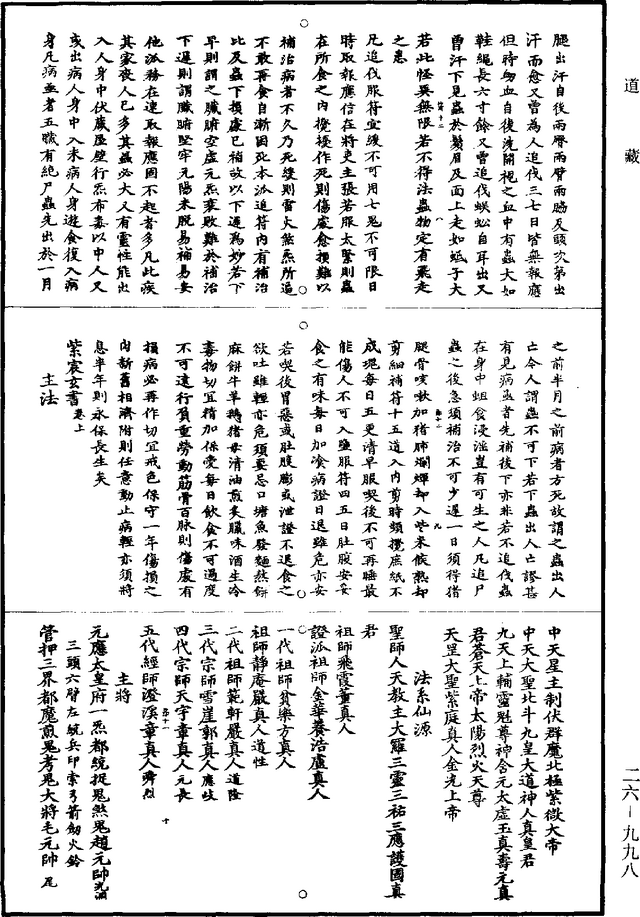 道藏
腿出汗自後兩臀兩臂兩腸及頭次第出
汗而愈又曾為人追伐三七日皆無報應
但時衂血自後洗開視之血中有蟲大如
鞋繩長六寸餘又曾追伐蜈蚣自耳出又
曾汗下見蟲於鬚眉及面上走如蝨子大
若此怪異無限若不得法蟲物定有飛走
之患
凡追伐服符宜緩不可用七鬼不可限日
時取報應信在將吏主張若服太緊則蟲
在所食之內攪擾作死則傷處愈損難以
補治病者不久乃死緩則雷火煞炁所逼
不敢再食自漸困死本派追符內有補治
比及蟲下損處已補故以下遲為妙若下
早則謂之臟腑空虛元炁衰敗難於補治
下遲則謂臟腑堅牢元陽未脫易補易安
他派務在速取報應因不起者多凡此疾
其家夜人已多其蟲必大又有靈性能出
入人身中伏藏屋壁行炁布毒以中人又
或出病人身中入未病人身遊食復入病
身凡病蟲者五臟有絕尸蟲先出於一月
之前半月之前病者方死故謂之蟲出人
亡令人謂蟲不可下若下蟲出人亡謬甚
有見病蟲者先補後下亦非若不追伐蟲
在身中蛆食浸淫豈有可生之人凡追尸
蟲之後急須補治不可少遲一日須得猪
腿骨咳嗽加猪肺爛燀却入些米候熟却
剪細補符十五道入內剪時頻攪庶紙不
成塊每日五更清早服喫後不可再睡最
能傷人不可入鹽服符四五日肚腹安妥
食之有味每日加飡病證日退雖危亦安
若喫後胃惡或肚腹膨或泄證不退食之
欲吐雖輕亦危須要忌口塘魚發麵然餅
麻餅牛羊鵝猪母清油煎炙臟味酒生冷
毒物切宜精加保愛每日飲食不可過度
不可遠行負重勞動筋骨百脉則傷處有
損病必再作切宜戒色保守一年傷損之
內新舊相濟附則任意動止病輕亦須將
息半年則永保長生矣
紫宸玄書卷上
主法
中天星主制伏群魔北極紫微大帝
中天大聖北斗九皇大道神人真皇君
九天上輔靈魁尊神含元太虛玉真壽元真
君蒼天上帝太陽烈火天尊
天罡大聖紫庭真人金光上帝
法系仙源
聖師人天教主大羅三靈三祐三應護國真
君
祖師飛霞董真人
證派祖師金華養浩盧真人
一代祖師貧樂方真人
祖師靜庵嚴真人道性
二代祖師範軒嚴真人道隆
三代宗師雪崖郭真人應歧
四代宗師天宇章真人元長
五代經師澄溪章真人霽烈
主將
元應太皇府一炁都統捉鬼煞鬼趙元帥光酒
三頭六臂左統兵印索弓箭劒火鈴
管押三界都魔煎鬼考鬼大將毛元帥尨
二六－九九八